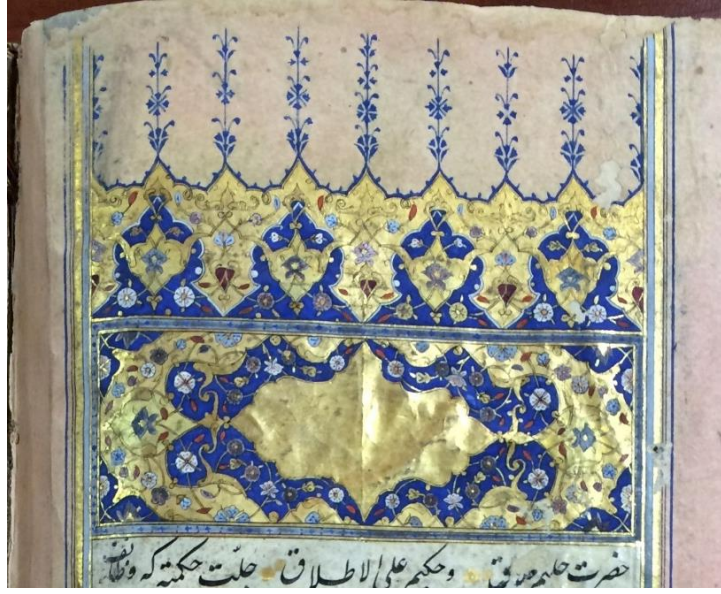 حضرت حکیم و حکیم علی الاطلاق جلّت حکمته که وظائف